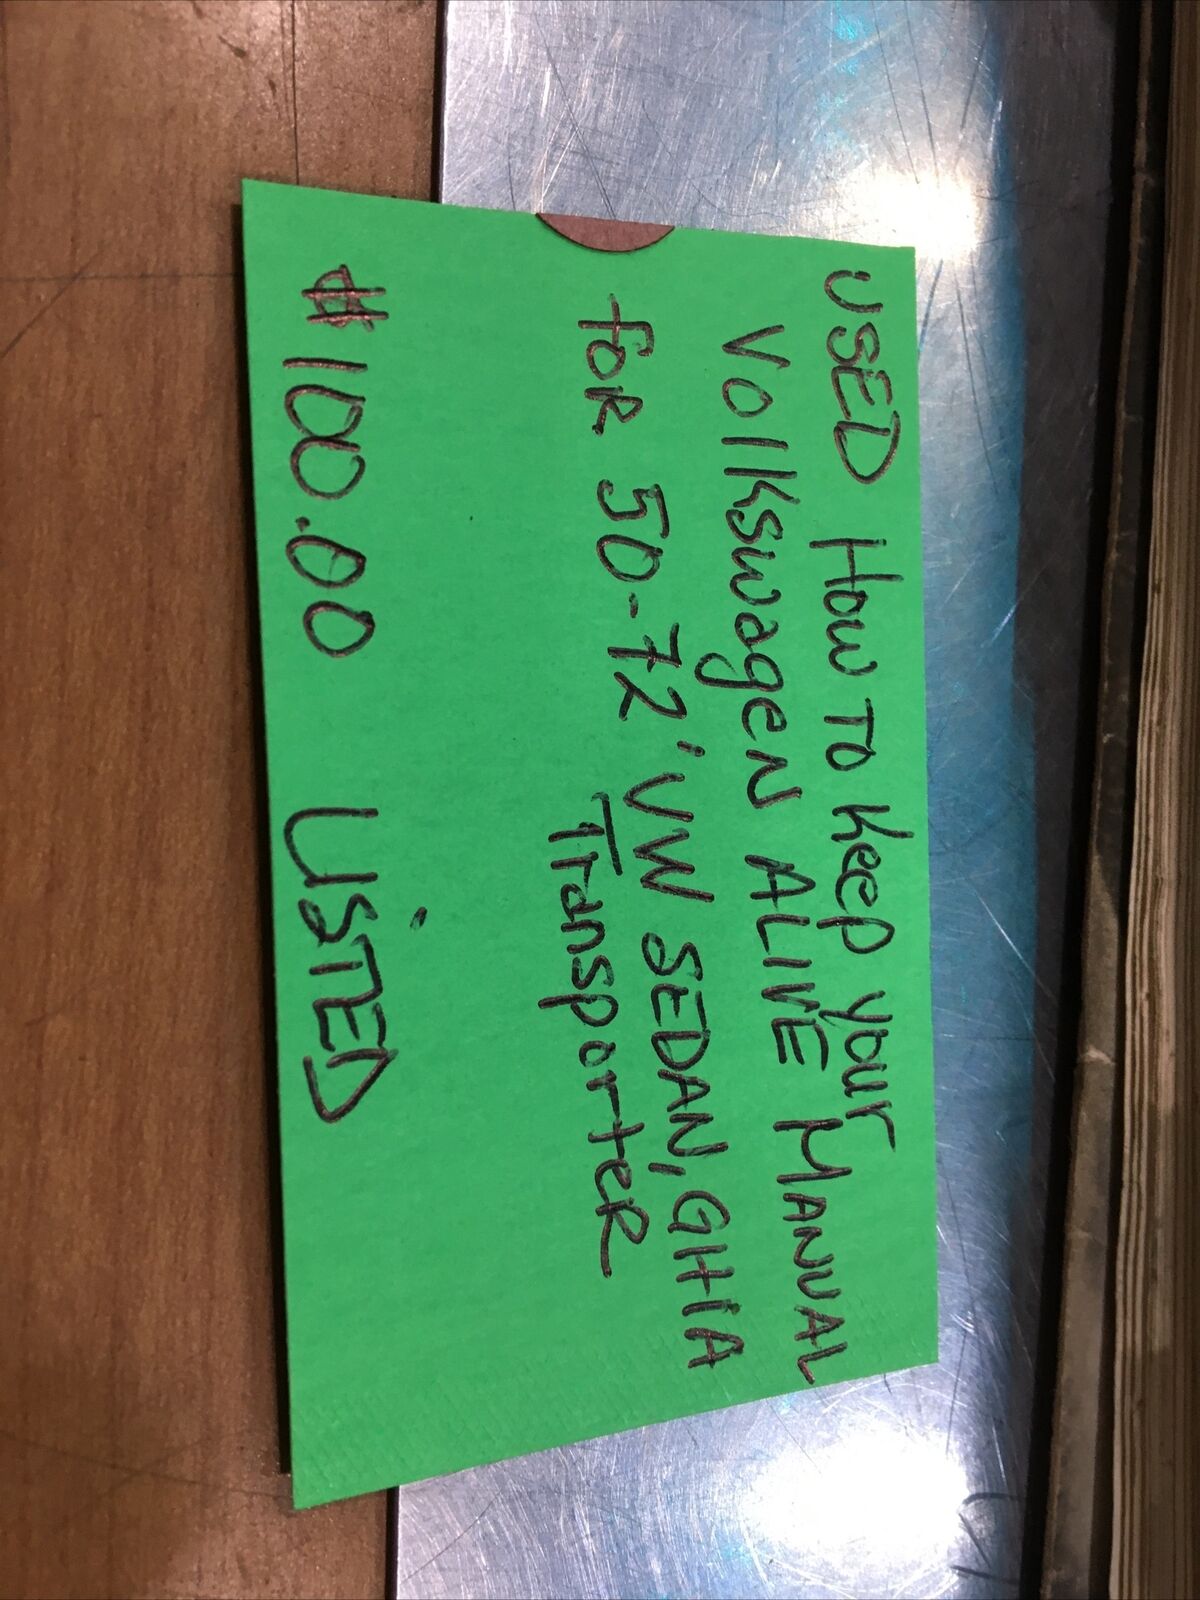 USED How To Keep your
Volkswagen ALIVE MANUAL
for 50-72' VW SEDAN, GHIA
Transporter
$100.00 LISTED